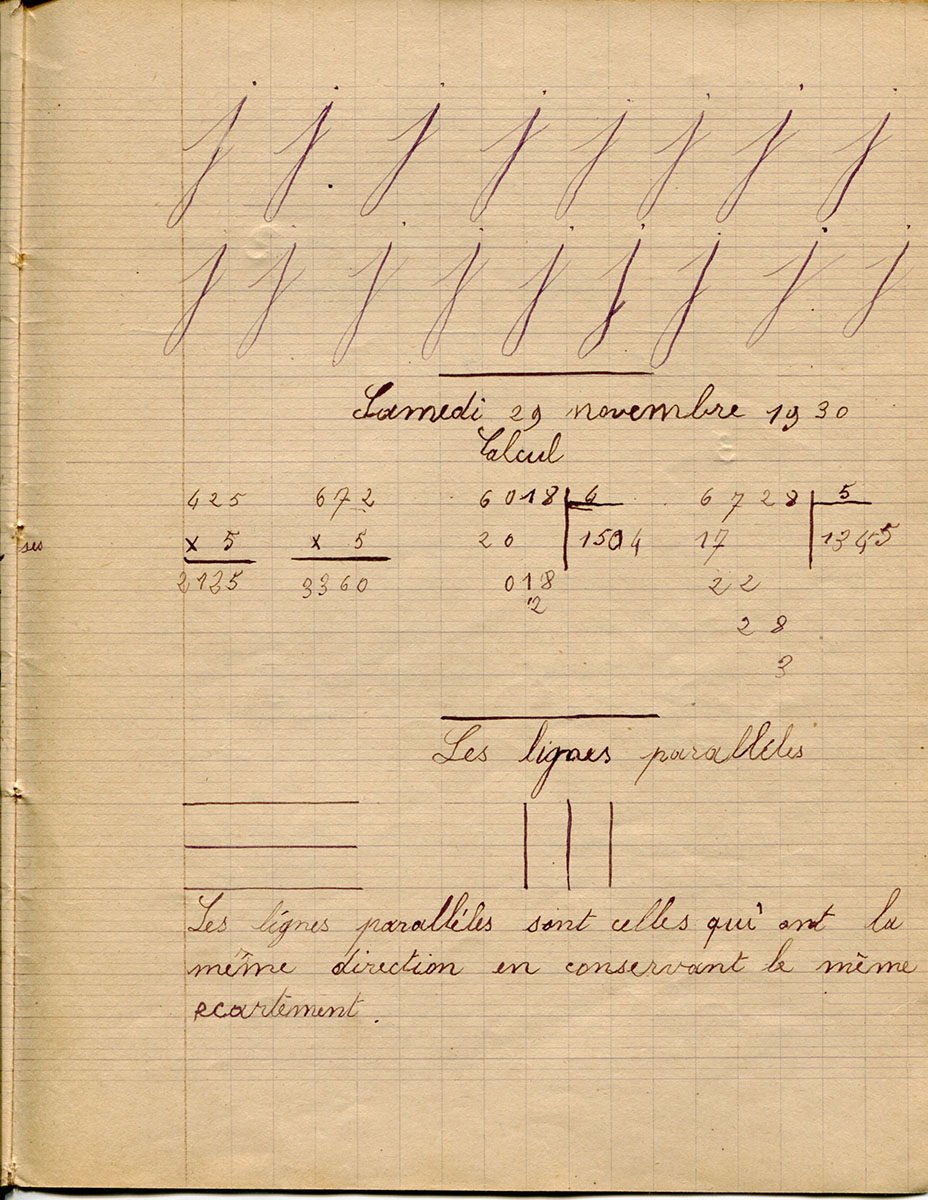 j j j j j j j j
j j j j j j j j j
Samedi 29 novembre 1930
Calcul
425 672 6018 4 6728 5
x 5 x 5 20 1504 17 1345
2125 3360 018 22
2
28
3
Les lignes parallèles
Les lignes parallèles sont celles qui ont la
même direction en conservant le même
ecartèment.